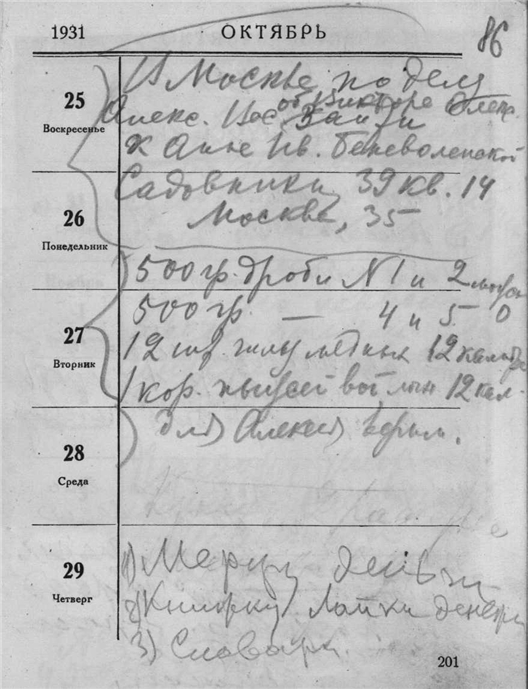 1931 ОКТЯБРЬ
86
25
Воскресенье
В Москве по делу
об Викторе Алекс.
Алекс. Вас.
К Анне Ив. Беневоленской
Садовники, 39 кв. 14
26
Понедельник
Москва, 35
500 гр. дроби N 1 и 2
27
Вторник
500 гр. — 4 и 5 0
12 шт. гильз медных 12 калибр
1 кор. пыжей войлочн 12 кал.
28
Среда
для Алексея
29
Четверг
1) Мерину деньги
2) Книжку Лайки
3) Словари
201